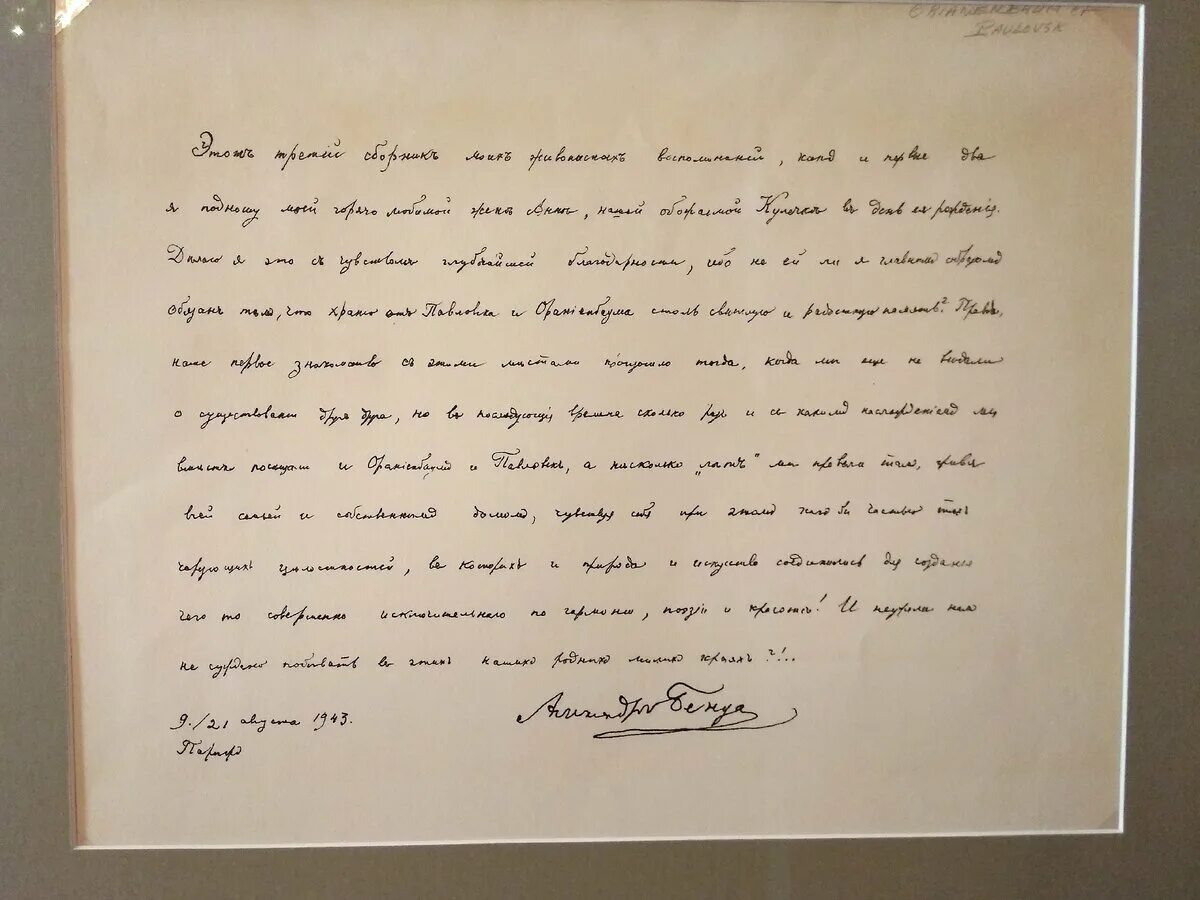 ORIANENBAUM et
PAVLOVSK
Этотъ третiй сборникъ моихъ живописныхъ воспоминанiй, какъ и первые два
я подношу моей горячо любимой женѣ Аннѣ, нашей обожаемой Кулечкѣ въ день ея рожденiя.
Дѣлаю я это съ чувствомъ глубочайшей благодарности, ибо не ей ли я главнымъ образомъ
обязанъ тѣмъ, что храню отъ Павловска и Оранiенбаума столь свѣтлую и радостную память? Правда,
наше первое знакомство съ этими мѣстами произошло тогда, когда мы еще не вѣдали
о существованiи другъ друга, но въ послѣдующiя времена сколько разъ и съ какимъ наслажденiемъ мы
вмѣстѣ посѣщали и Оранiенбаумъ и Павловскъ, а нѣсколько „лѣтъ" мы провели тамъ, живя
всей семьей и собственнымъ домомъ, чувствуя себя при этомъ какъ бы частью тѣхъ
чарующихъ цѣлостностей, въ которыхъ и природа и искусство соединились для созданiя
чего то совершенно исключительнаго по гармонiи, поэзiи и красотѣ! И неужели намъ
не суждено побывать въ этихъ нашихъ родныхъ милыхъ краяхъ?!..
Александръ Бенуа
9./21 августа 1943.
Парижъ